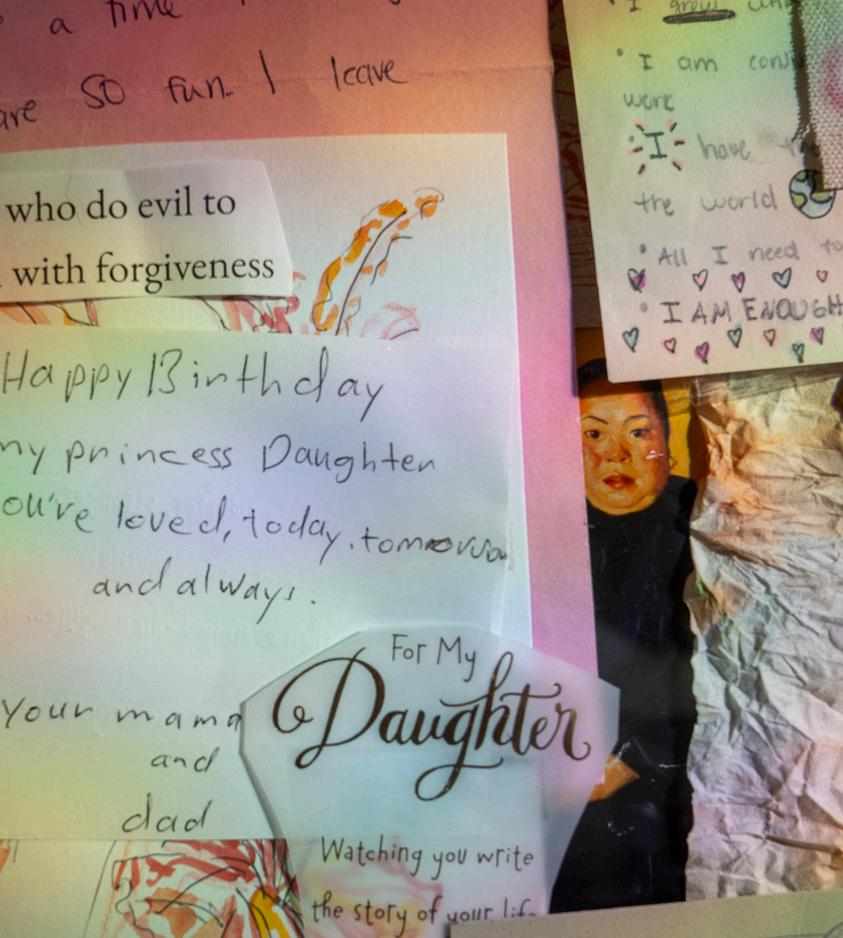 a time
are so fun. I leave
who do evil to
with forgiveness
Happy Birthday
my princess Daughter
you've loved, today, tomorrow
and always.
Your mama
and
dad
For My
Daughter
Watching you write
the story of your life
I grew
I am
work
I have the
the world
All I need to
I AM ENOUGH